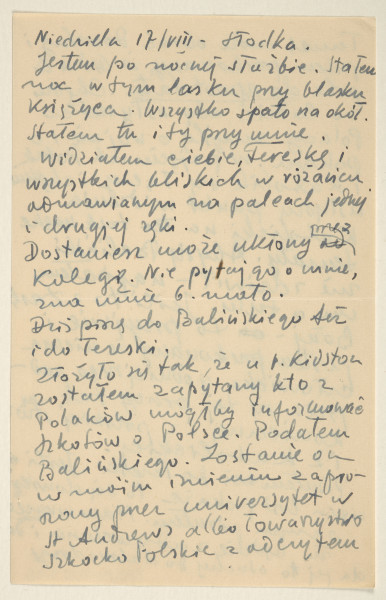 Niedziela 17/VIII - Słodka.
Jestem po nocnej służbie. Stałem
noc w tym lasku przy blasku
Księżyca. Wszystko spało na okół.
Stałem tu i ty przy mnie.
Widziałem ciebie, Tereskę i
wszystkich bliskich w różańcu
odmawianym na palcach jednej
i drugiej ręki.
Dostaniesz może ukłony przez
Kolegę. Nie pytaj go o mnie,
zna mnie b. mało.
Dziś piszę do Balińskiego też
i do Tereski.
Złożyło się tak, że u p. Kidston
zostałem zapytany kto z
Polaków mógłby informować
Szkotów o Polsce. Podałem
Balińskiego. Zostanie on
w moim imieniu zapro-
szony przez uniwersytet w
St Andrews albo Towarzystwo
Szkocko Polskie z odczytem